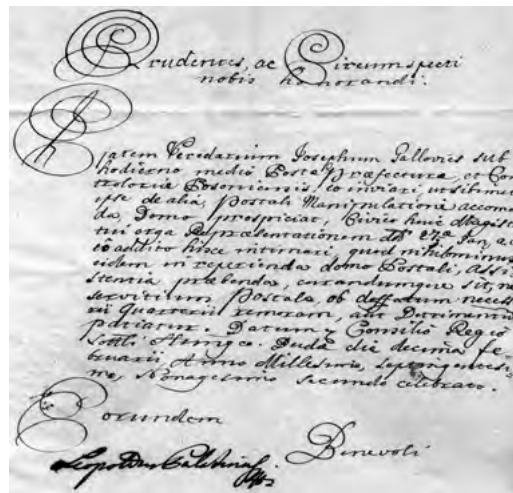 Prudentes, ac Circumspecti
nobis honorandi.
Veredarium Josephum Gallovics sub
hodierno medio Postal. Praefecturae, et Con
troloriae Posoniensis, eo inviari, ut sibimet
ipse de alia, Postali Manipulationi accomo
da, Domo prospiciat, Civico huic Magist
tui erga Repraesentationem dto 27a Jan, a. c.
eo addito hisce intimari, quod nihilominus
eidem in reperienda domo Postali, Assi
stentia praebenda, curandumque sit, ne
servitium Postale, ob deffectum necess
rii Quarterii remoram, aut Detrimentu
patiatur. Datum Consilio Regio
Budae die decima Fe
bruarii, Anno Millesimo, Septingentesi
mo, Nonagesimo secundo celebrato.
Eorundem
Benevoli
Leopoldus